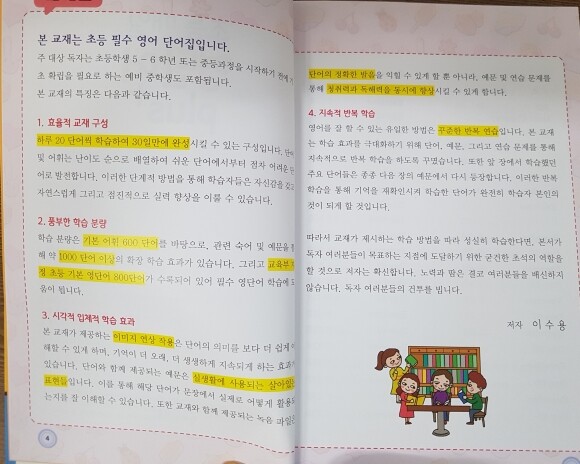 본 교재는 초등 필수 영어 단어집입니다.
주 대상 독자는 초등학생 5 - 6학년 또는 중등과정을 시작하기 전에
초 확립을 필요로 하는 예비 중학생도 포함됩니다.
본 교재의 특징은 다음과 같습니다.
1. 효율적 교재 구성
하루 20 단어씩 학습하여 30일만에 완성시킬 수 있는 구성입니다.
및 어휘는 난이도 순으로 배열하여 쉬운 단어에서부터 점차 어려운
어로 발전합니다. 이러한 단계적 방법을 통해 학습자들은 자신감을
자연스럽게 그리고 점진적으로 실력 향상을 이룰 수 있습니다.
2. 풍부한 학습 분량
학습 분량은 기본 어휘 600 단어를 바탕으로, 관련 숙어 및 예문을
해 약 1000 단어 이상의 확장 학습 효과가 있습니다. 그리고 교육부
정 초등 기본 영단어 800단어가 수록되어 있어 필수 영단어 학습에
움이 됩니다.
3. 시각적 입체적 학습 효과
본 교재가 제공하는 이미지 연상 작용은 단어의 의미를 보다 더 쉽게
해할 수 있게 하며, 기억이 더 오래, 더 생생하게 지속되게 하는 효과
있습니다. 단어와 함께 제공되는 예문은 실생활에 사용되는 살아있는
표현들입니다. 이를 통해 해당 단어가 문장에서 실제로 어떻게 활용
는지를 잘 이해할 수 있습니다. 또한 교재와 함께 제공되는 녹음 파일은
4
단어의 정확한 발음을 익힐 수 있게 할 뿐 아니라, 예문 및 연습 문제를
통해 청취력과 독해력을 동시에 향상시킬 수 있게 합니다.
4. 지속적 반복 학습
영어를 잘 할 수 있는 유일한 방법은 꾸준한 반복 연습입니다. 본 교재
는 학습 효과를 극대화하기 위해 단어, 예문, 그리고 연습 문제를 통해
지속적으로 반복 학습을 하도록 꾸몄습니다. 또한 앞 장에서 학습했던
주요 단어들은 종종 다음 장의 예문에서 다시 등장합니다. 이러한 반복
학습을 통해 기억을 재확인시켜 학습한 단어가 완전히 학습자 본인의
것이 되게 할 것입니다.
따라서 교재가 제시하는 학습 방법을 따라 성실히 학습한다면, 본서가
독자 여러분들이 목표하는 지점에 도달하기 위한 굳건한 초석의 역할을
할 것으로 저자는 확신합니다. 노력과 땀은 결코 여러분들을 배신하지
않습니다. 독자 여러분들의 건투를 빕니다.
저자 이수용